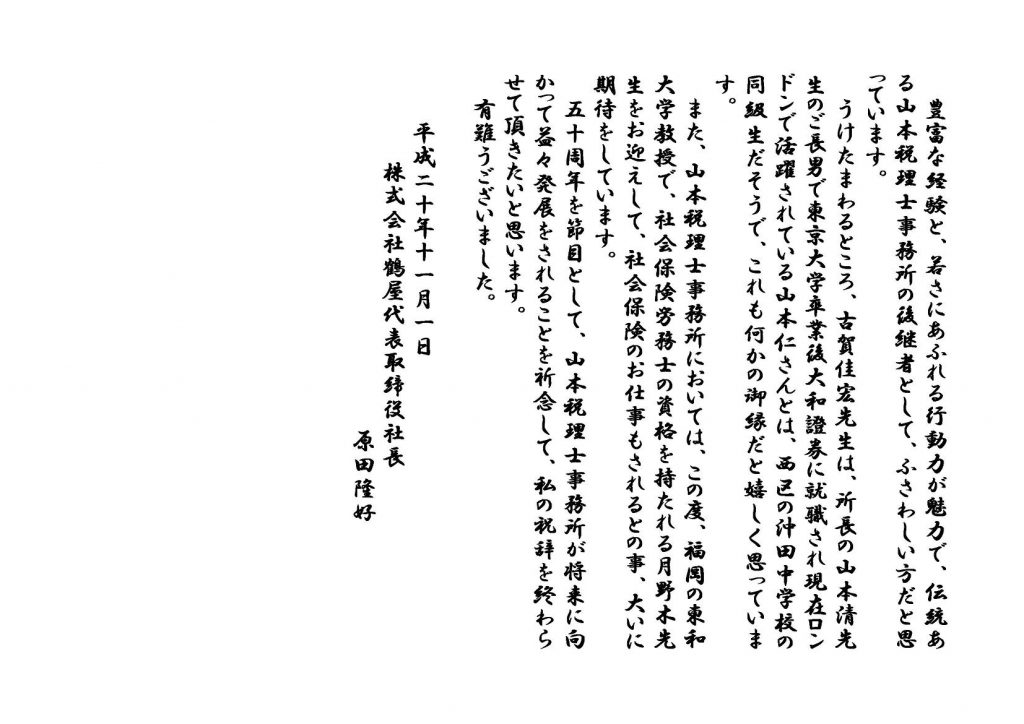 豊富な経験と、若さにあふれる行動力が魅力で、伝統あ
る山本税理士事務所の後継者として、ふさわしい方だと思
っています。
うけたまわるところ、古賀佳宏先生は、所長の山本清先
生のご長男で東京大学卒業後大和證券に就職され現在ロン
ドンで活躍されている山本仁さんとは、西区の沖田中学校の
同級生だそうで、これも何かの御縁だと嬉しく思っていま
す。
また、山本税理士事務所においては、この度、福岡の東和
大学教授で、社会保険労務士の資格を持たれる月野木先
生をお迎えして、社会保険のお仕事もされるとの事、大いに
期待をしています。
五十周年を節目として、山本税理士事務所が将来に向
かって益々発展をされることを祈念して、私の祝辞を終わら
せて頂きたいと思います。
有難うございました。
平成二十年十一月一日
株式会社鶴屋代表取締役社長
原田隆好